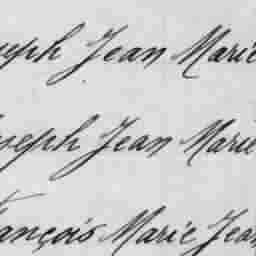 oseph Jean Marie
Joseph Jean Marie
François Marie Jean